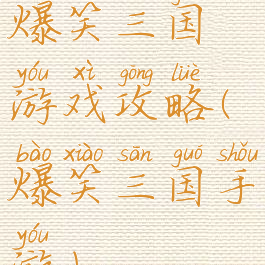 爆笑三国
yóu xì gōng lüè
游戏攻略(
bào xiào sān guó shǒu
爆笑三国手
yóu
游)